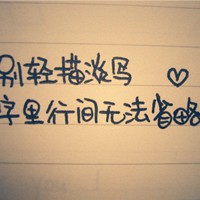 别轻描淡写 ♡
字里行间无法省略